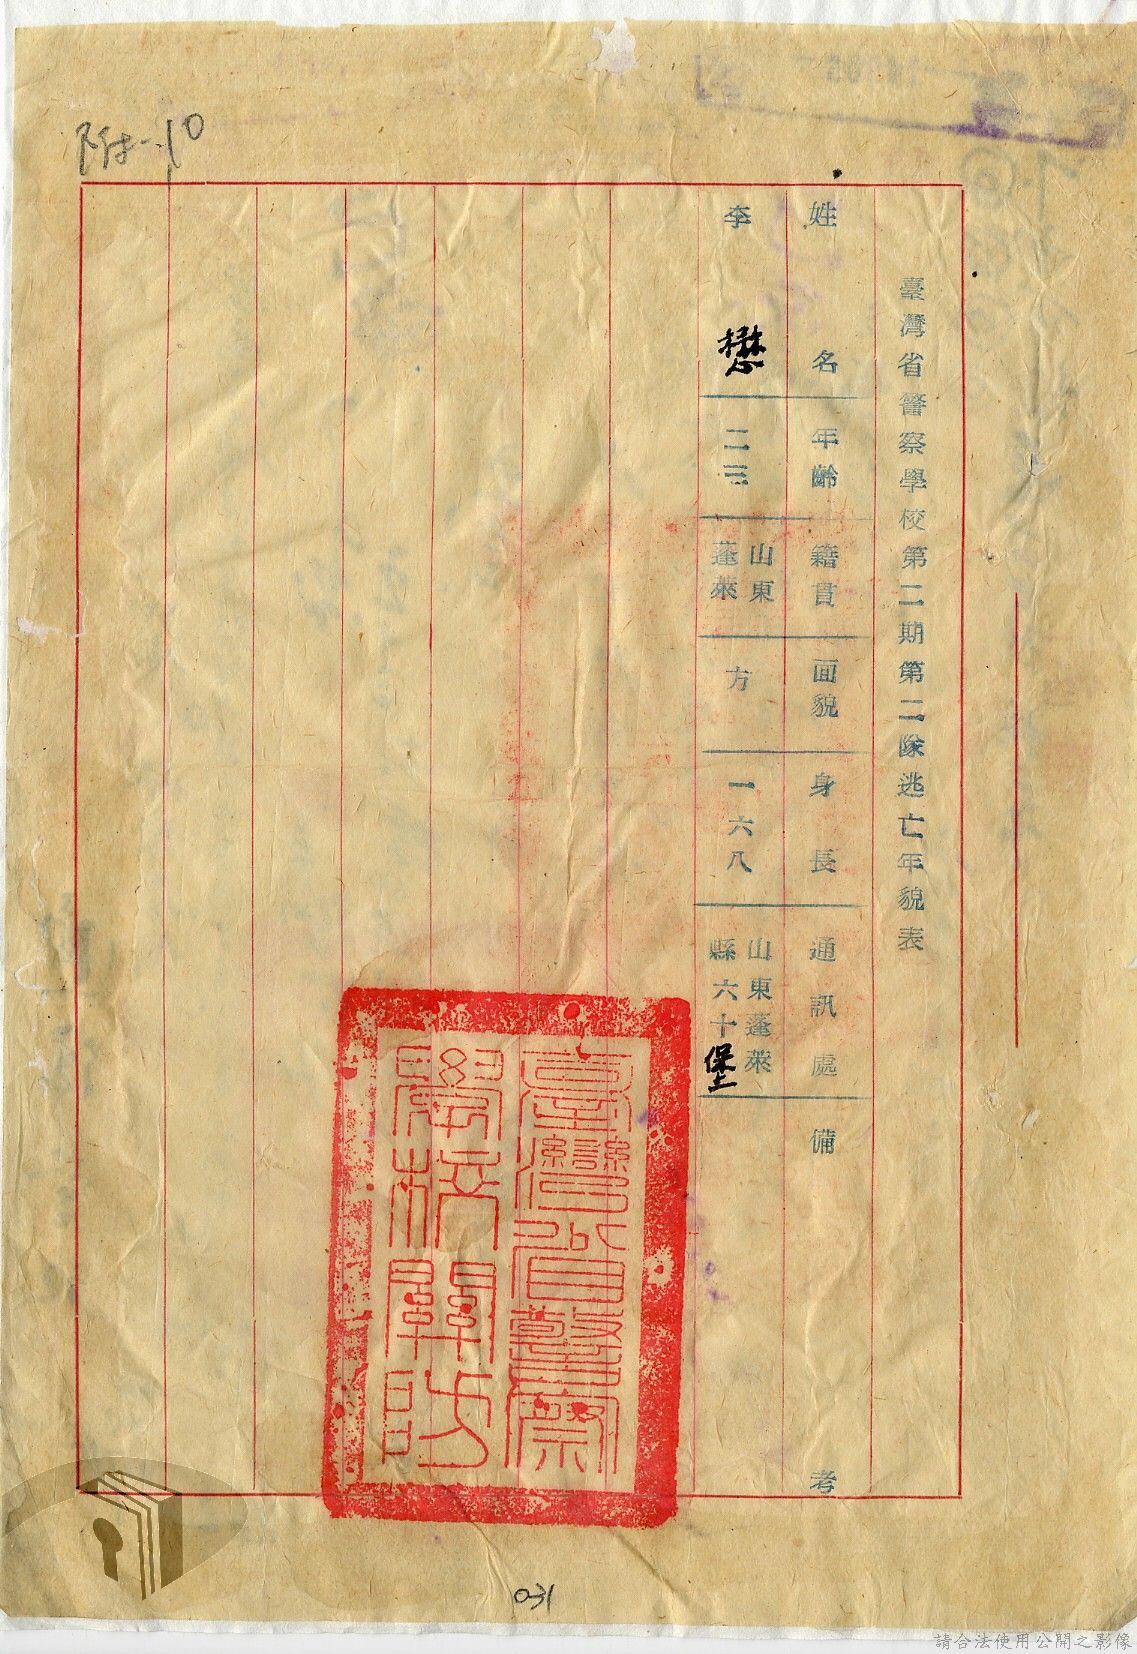 附-10
臺灣省警察學校第二期第二隊逃亡年貌表
姓名 年齡 籍貫 面貌 身長 通訊處 備考
李懋 二三 山東蓬萊 方 一六八 山東蓬萊縣六十堡
臺灣省警察
學校關防
031
請合法使用公開之影像